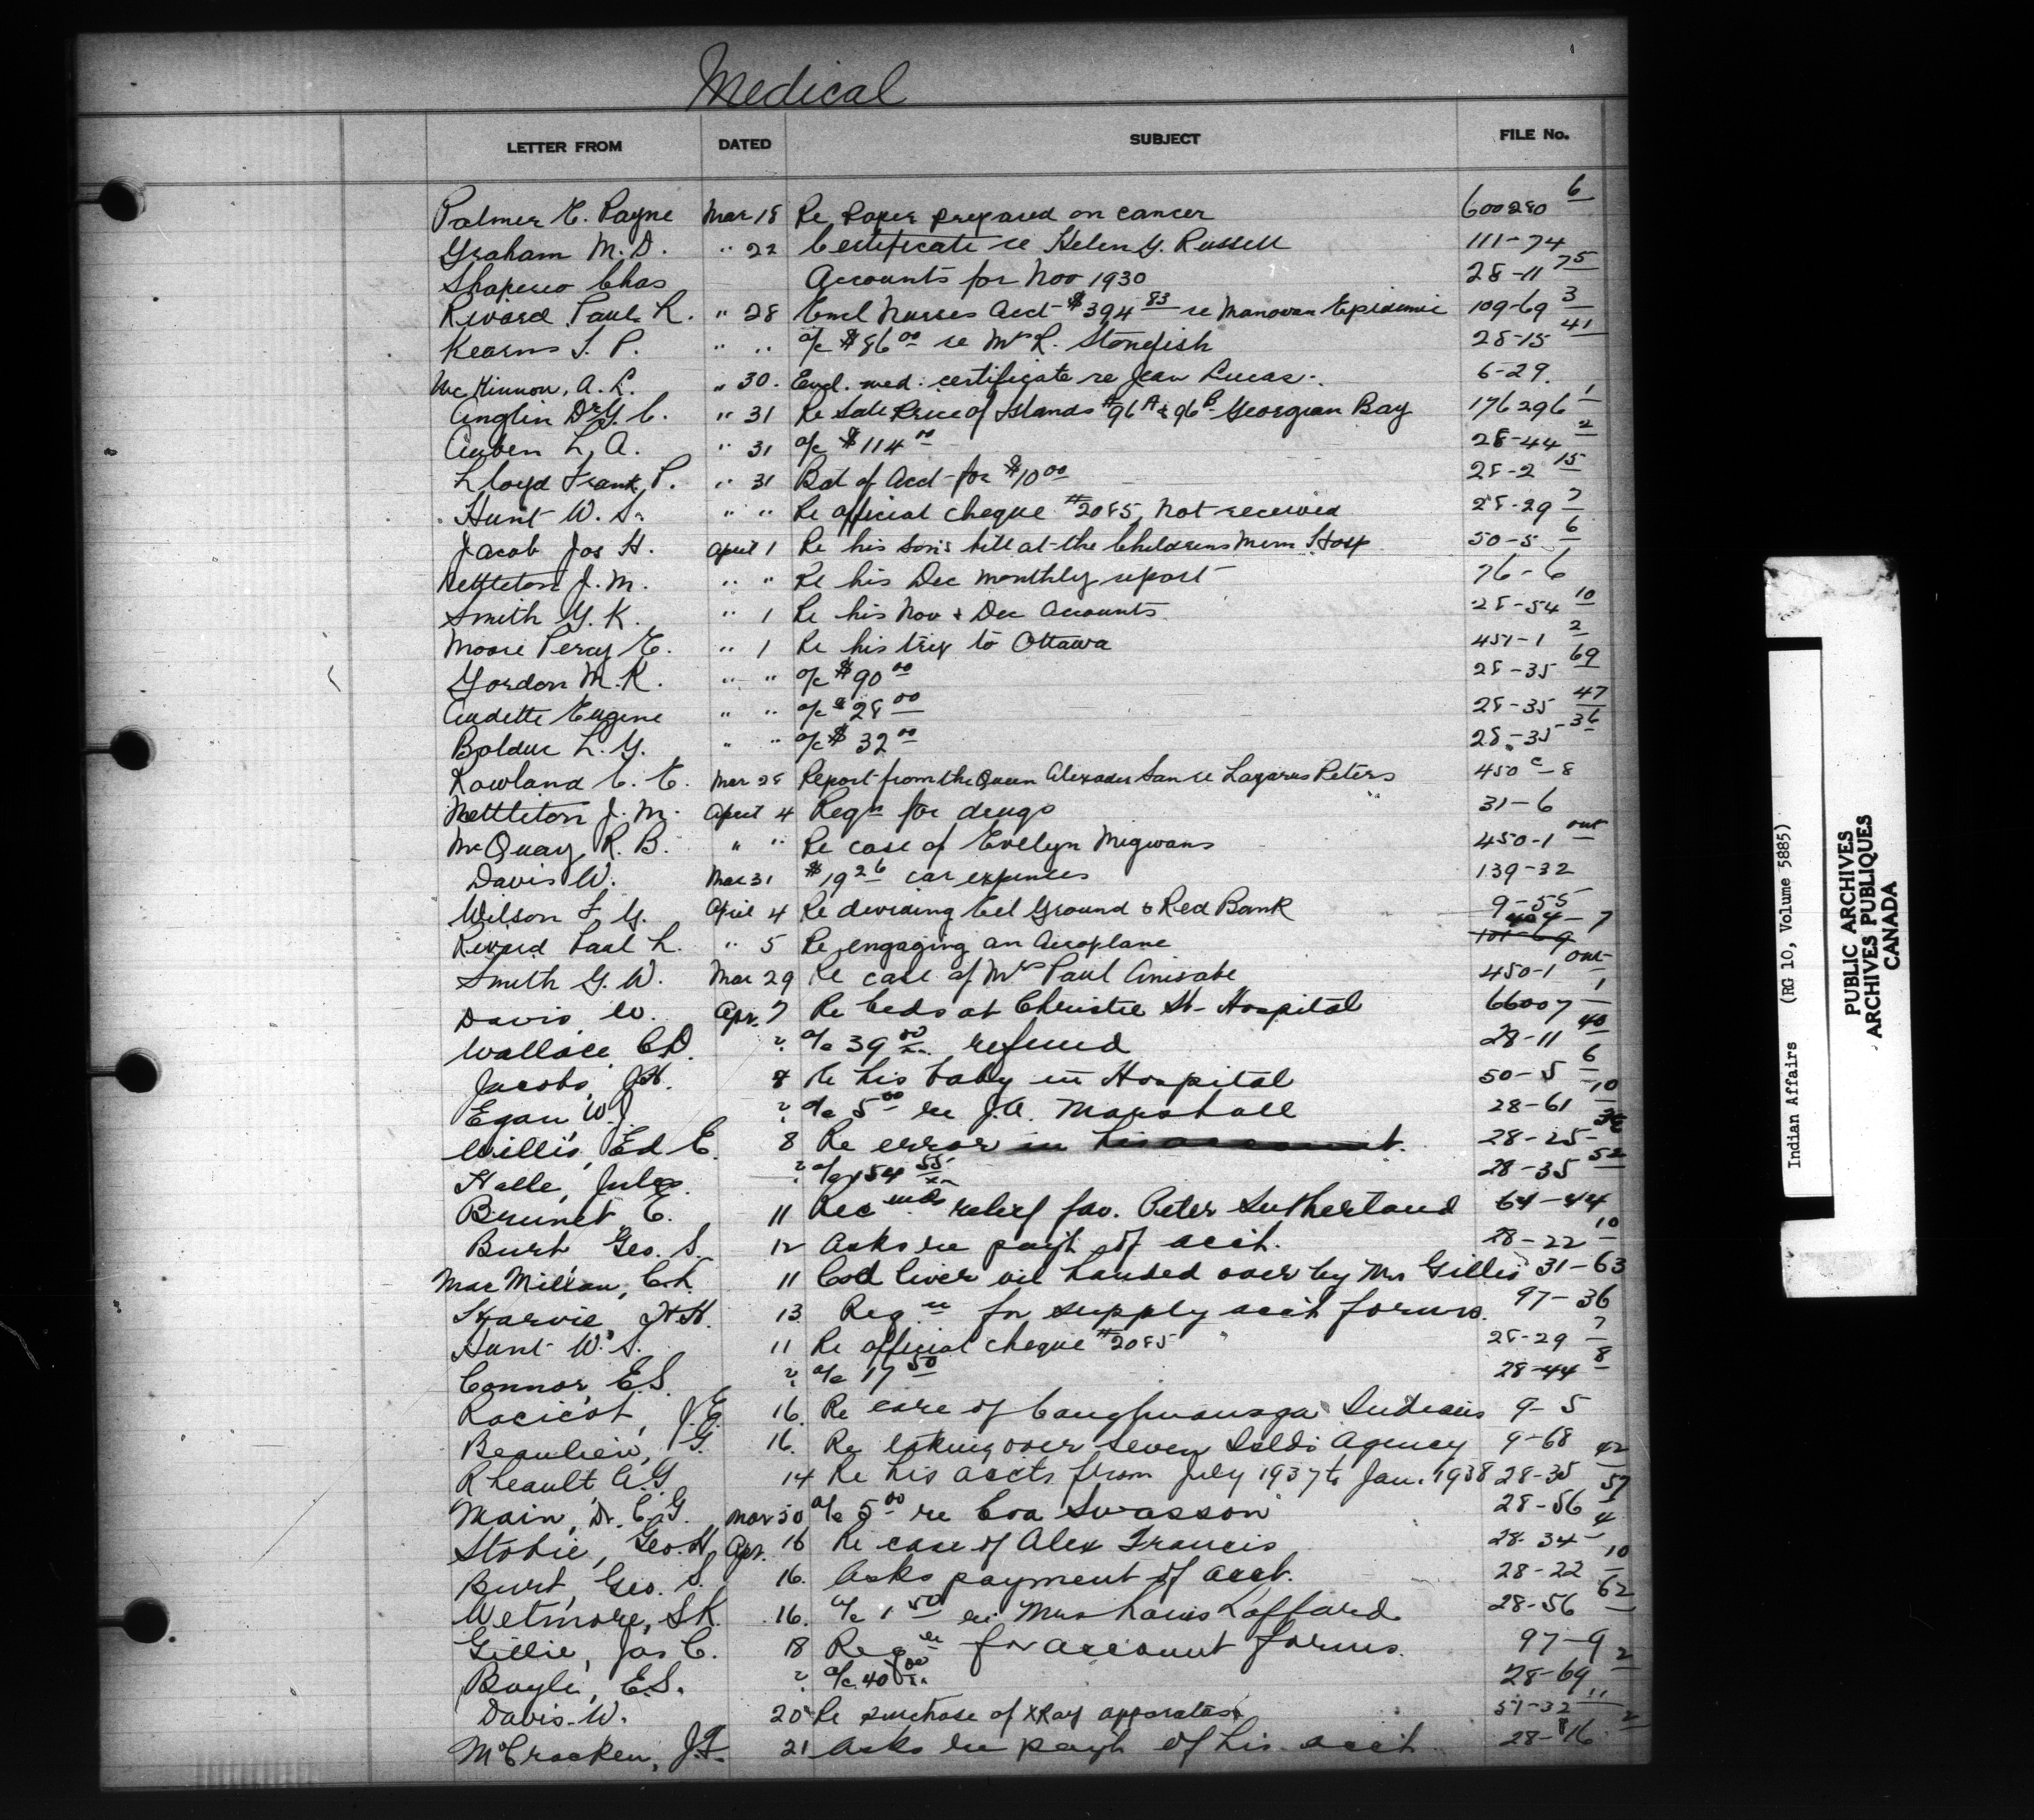 Medical
LETTER FROM DATED SUBJECT FILE No.
Palmer E. Payne Mar 18 Re Paper prepared on cancer 600280 6
Graham M. D. " 22 Certificate re Helen G. Russell 111-74
Shapero Chas Accounts for Nov 1930 28-11 75
Rivard Paul L. " 28 Encl Nurses Acct $394 83 re Manovan Epidemic 109-69 3
Kearns T. P. " " a/c $86 00 re Mrs R. Stonefish 28-15 41
McKinnon, A. L. " 30. Encl. med. certificate re Jean Lucas. 6-29.
Anglin Dr G. C. " 31 Re Sale Price of Islands #96 A & 96 B Georgian Bay 176296 1
L. A. " 31 a/c $114 00 28-44 2
Lloyd Frank P. " 31 Bal of Acct for $10 00 28-2 15
Hunt W. S. " " Re official cheque #2085, not received 28-29 7
Jacob Jos H. April 1 Re his son's bill at the Childrens Mem Hosp 50-5 6
Nettleton J. M. " " Re his Dec monthly report 76-6
Smith G. K. " 1 Re his Nov & Dec Accounts 28-54 10
Moore Percy E. " 1 Re his trip to Ottawa 451-1 2
Gordon M. K. " " a/c $90 00 28-35 69
Audette Eugene " " a/c $28 00 28-35 47
Bolduc L. G. " " a/c $32 00 28-35 36
Rowland C. E. Mar 28 Report from the Queen Alexander San re Lazarus Peters 450 c-8
Nettleton J. M. April 4 Reqn for drugs 31-6
McQuay R. B. " " Re case of Evelyn Migwans 450-1 ont
Davis W. Mar 31 $19 26 car expenses 139-32
Wilson F. G. April 4 Re dividing Eel Ground & Red Bank 9-55
404-7
Rivard Paul L. " 5 Re engaging an Aeroplane 101-69
Smith G. W. Mar 29 Re case of Mrs Paul Anisabe 450-1 ont
Davis, W. Apr. 7 Re beds at Christie St. Hospital 66007 1
Wallace C.D. " a/c 39 00 refund 28-11 40
Jacobs, J.H. 8 Re his baby in Hospital 50-5 6
Egan, W.J. " a/c 5 00 re J.A. Marshall 28-61 10
Willis, Ed E. 8 Re error in his account. 28-25
Halle, Jules " a/c 154 55 28-35 52
Brunet E. 11 Recmds relief fav. Peter Sutherland 64-44
Burt, Geo. S. 12 Asks re payt of acct. 28-22 10
MacMillan, C.L. 11 Cod liver oil handed over by Mrs Gillis 31-63
Harvie, J.H. 13 Reqn for supply acct forms. 97-36
Hunt W. S. 11 Re official cheque #2085 28-29 7
Connor, E.S. " a/c 17 50 28-44 8
Racicot, J.E. 16. Re care of Caughnawaga Indians 9-5
Beaulieu, G. 16. Re taking over Seven Islds Agency 9-68
Rheault A.G. 14 Re his accts from July 1937 to Jan. 1938 28-35 42
Main, Dr. C.G. Mar 30 a/c 5 00 re Eva Swasson 28-56 57
Stobie, Geo. H. Apr. 16 Re case of Alex Francis 28-34 4
Burt, Geo. S. 16. Asks payment of acct. 28-22 10
Wetmore, S.K. 16. a/c 1 50 re Mrs Louis Laffard 28-56 62
Gillie, Jas C. 18 Reqn for account forms. 97-9
Boyle, E.S. " a/c 40 00 28-69 2
Davis W. 20 Re purchase of XRay apparatus 51-32 11
McCracken, J.T. 21 Asks re payt of his acct 28-16 2
Indian Affairs (RG 10, Volume 5885)
PUBLIC ARCHIVES
ARCHIVES PUBLIQUES
CANADA